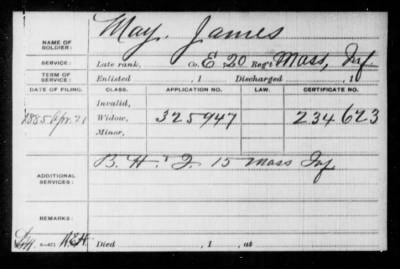 May, James
NAME OF SOLDIER:
SERVICE: Late rank, Co. E, 20 Reg't Mass, Inf.
TERM OF SERVICE: Enlisted , 1 Discharged , 1
DATE OF FILING. CLASS. APPLICATION NO. LAW. CERTIFICATE NO.
Invalid,
1885 Apr. 21 Widow, 325947 234623
Minor,
ADDITIONAL SERVICES: 15 Mass Inf
REMARKS:
Died , 1 , at